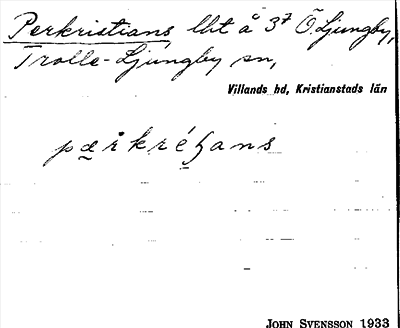 Perkristians lht å 3⁷ Ö. Ljungby,
Trolle-Ljungby sn,
Villands hd, Kristianstads län
JOHN SVENSSON 1933